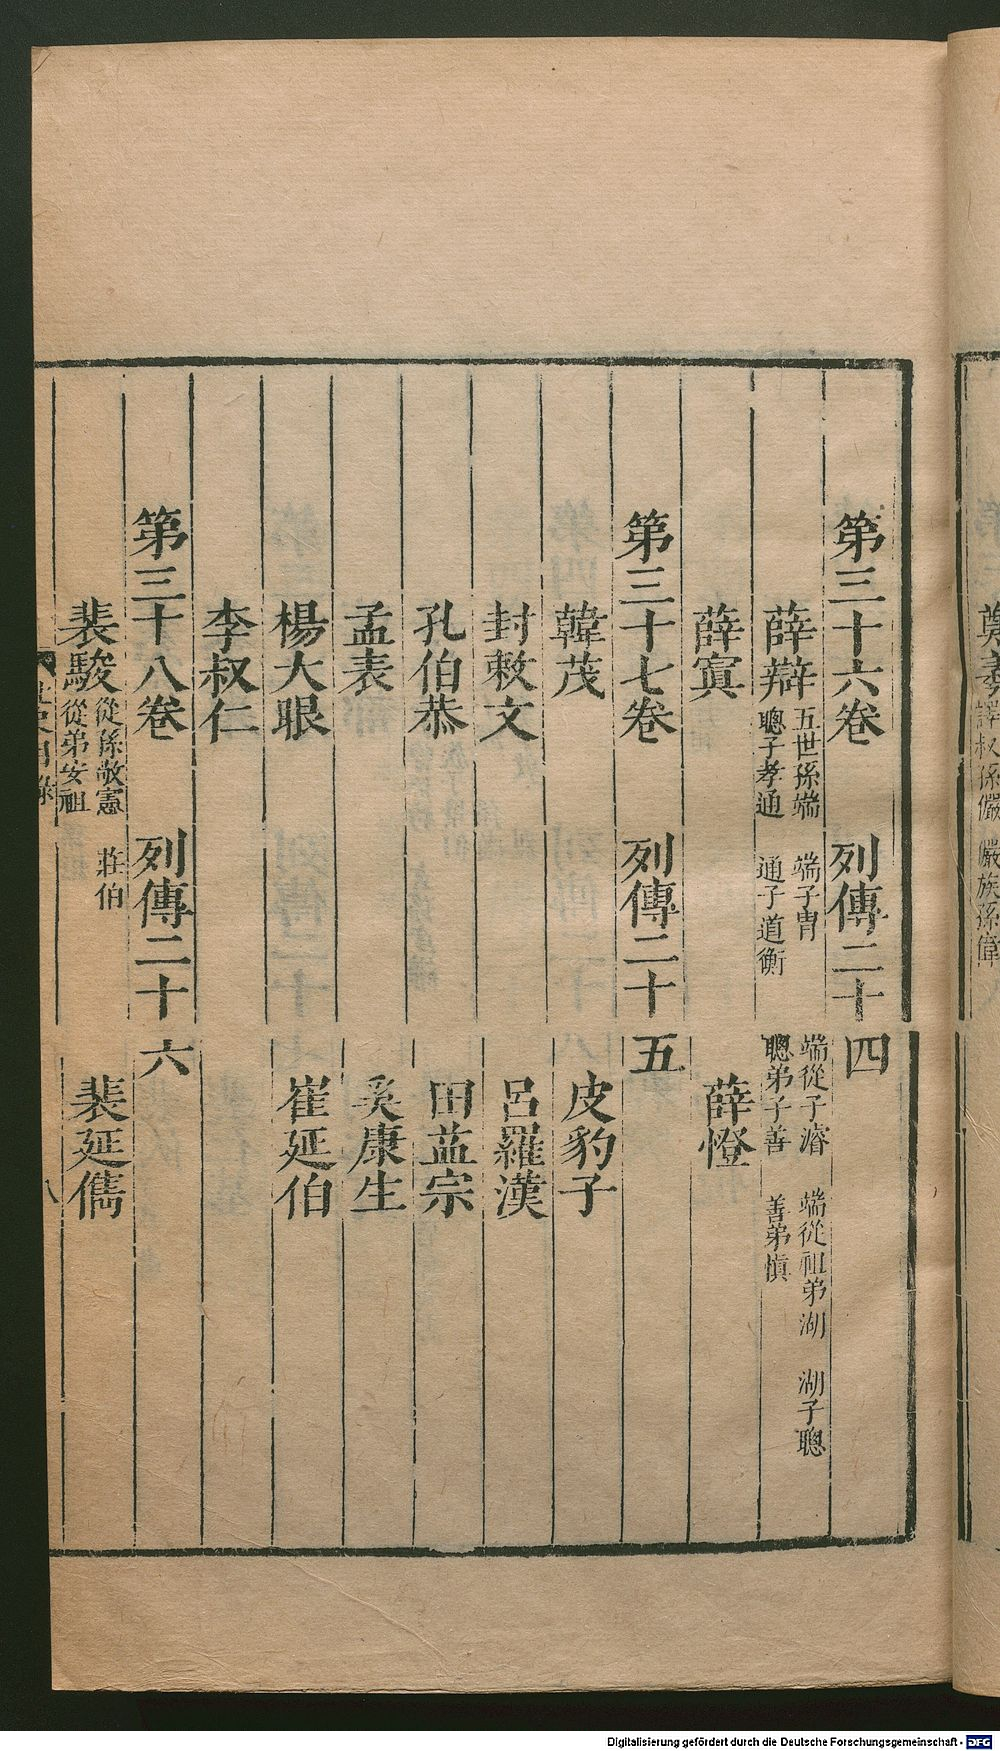 第三十六卷 列傳二十四
薛辯 五世孫端 端子胄 端從子濬 端從祖弟湖 湖子聰
聰子孝通 通子道衡 聰弟子善 善弟慎
薛寘 薛憕
第三十七卷 列傳二十五
韓茂 皮豹子
封敕文 呂羅漢
孔伯恭 田益宗
孟表 奚康生
楊大眼 崔延伯
李叔仁
第三十八卷 列傳二十六
裴駿 從孫敬憲 莊伯 裴延儁
從弟安祖
八
Digitalisierung gefördert durch die Deutsche Forschungsgemeinschaft - DFG